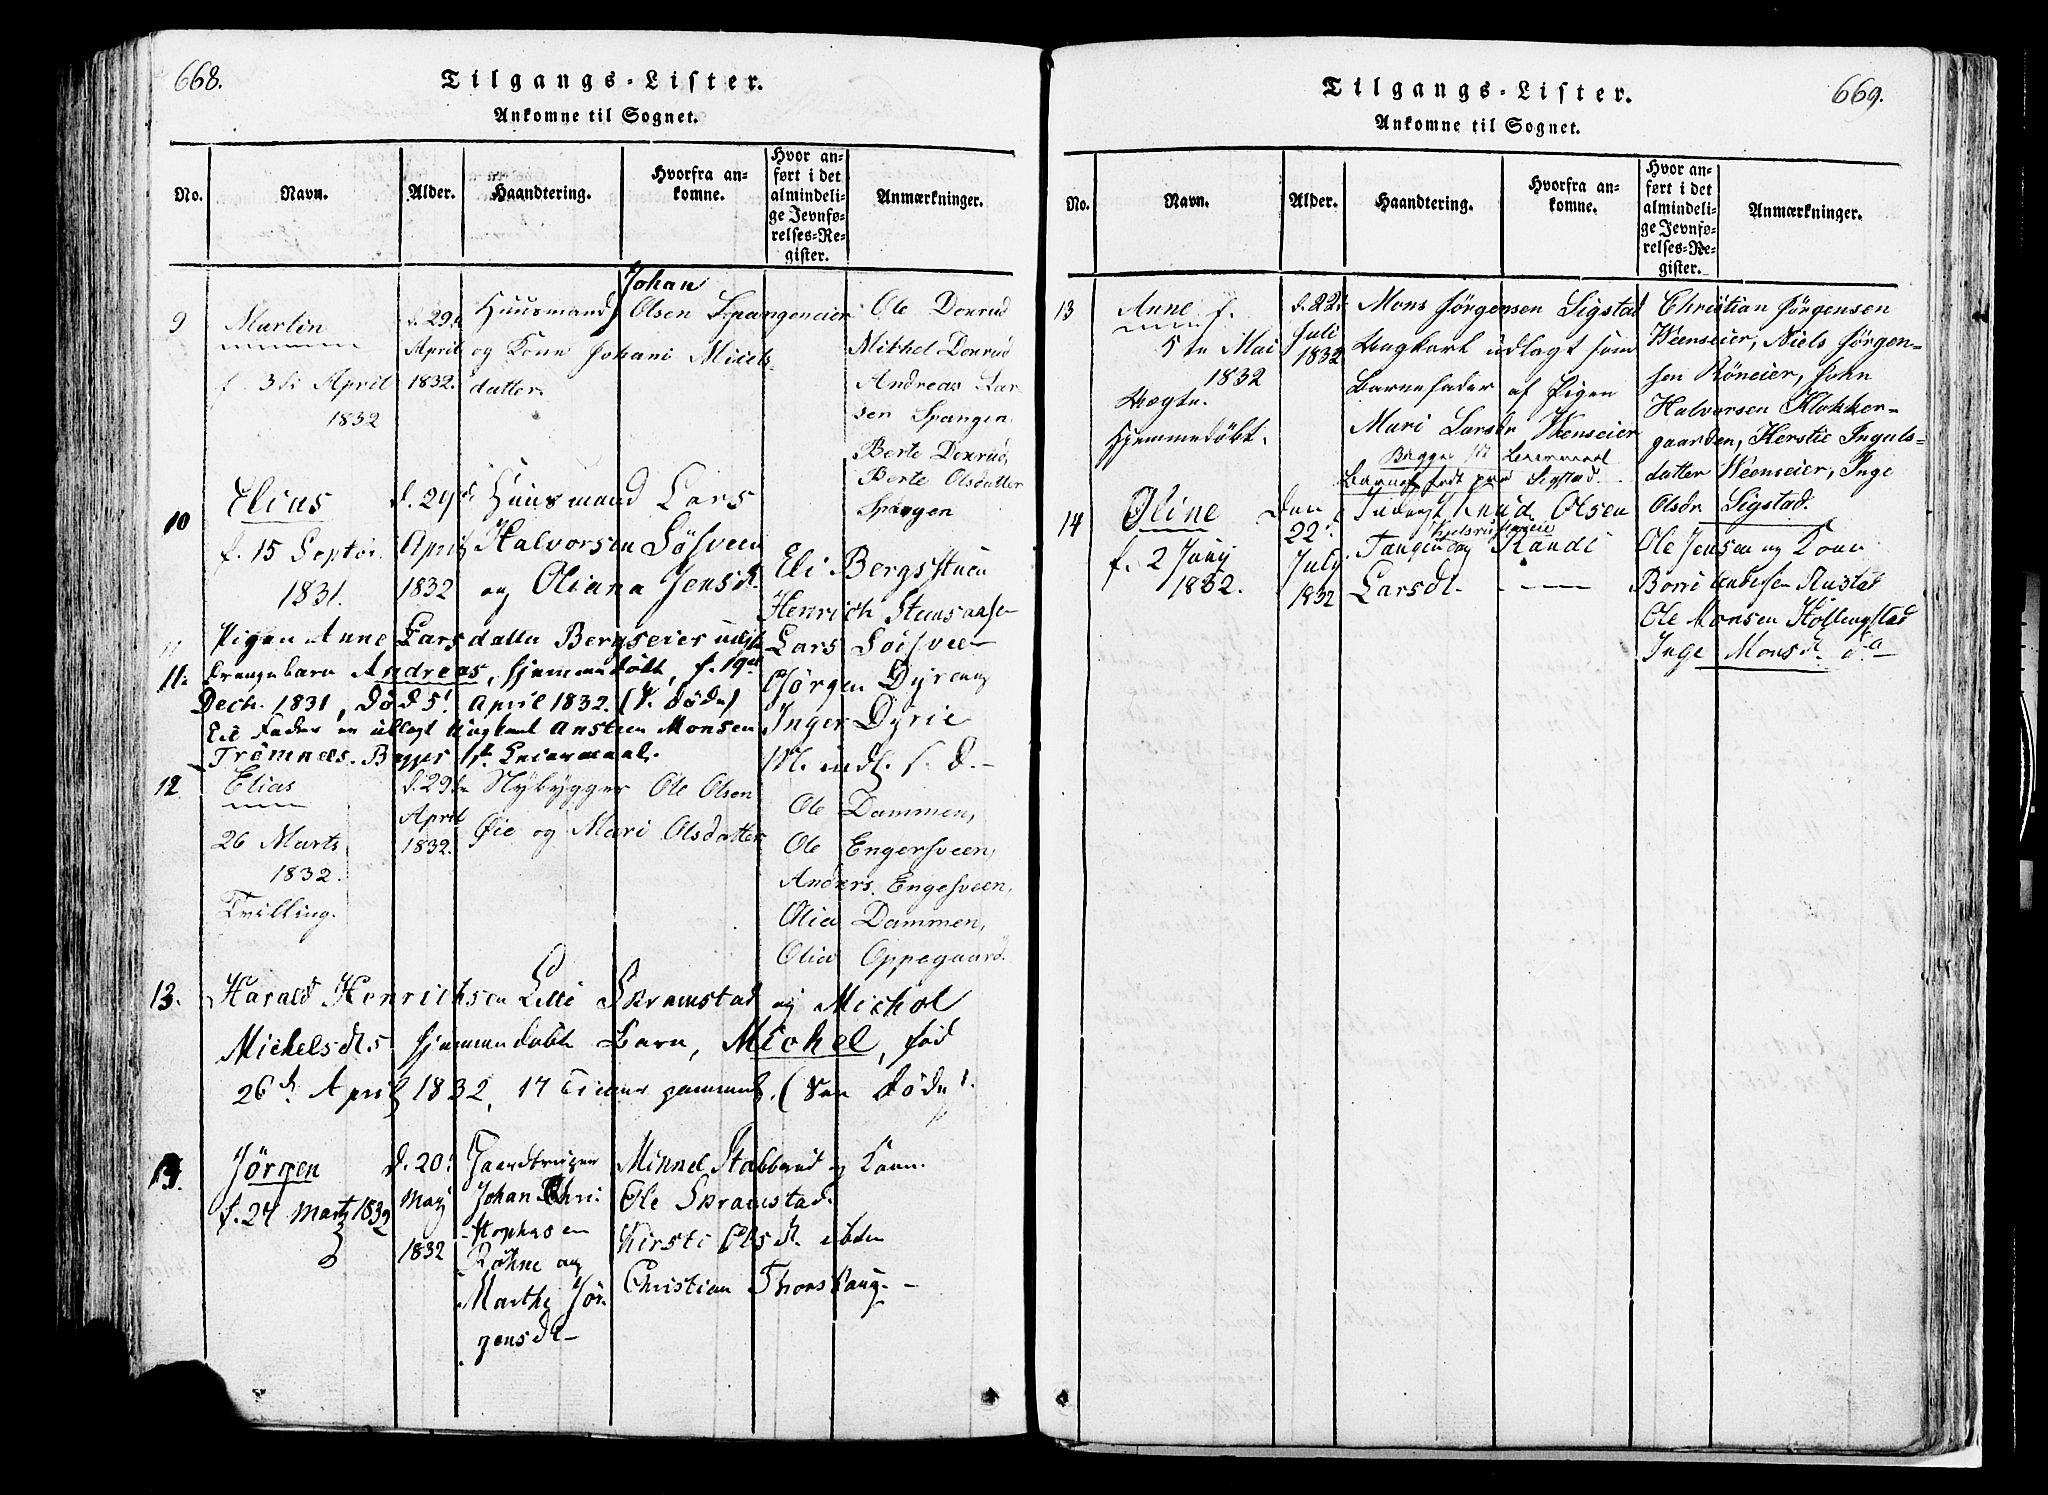 668.
Tilgangs-Lister.
Ankomne til Sognet.
No.
Navn.
Alder.
Haandtering.
Hvorfra an-
komne.
Hvor an-
ført i det
almindeli-
ge Jevnfø-
relses-Re-
gister.
Anmærkninger.
9
Martin
f. 3di April
1832
d. 29.
April
1832.
Johan
Huusmand Olsen Spangeneier
og Kone Johani Michels-
datter.
Ole Donrud
Mikkel Donrud
Andreas Lar-
sen Spangen
Berte Donrud,
Berte Olsdatter
Spangen
10
Elius
f. 15 Septbr.
1831.
d. 29de
April
1832
Huusmand Lars
Halvorsen Løsveen
og Oliana Jensdt.
Eli Bergsstuen
Henrich
Lars Løisveen
Jørgen Dyren
Inger Dyrie
11.
Pigen Anne Larsdatter Bergseier
Drengebarn Andreas, hjemmedøbt, f. 19de
Decb. 1831, død 5t April 1832. (V. døde)
Fader er udlagt Ungkarl Ansteen Monsen
Trömnæs. Begges 1ste Leiermaal.
12.
Elias
26 Marts
1832.
Tvilling.
d. 29de
April
1832.
Nybygger Ole Olsen
Øie og Mari Olsdatter
Ole Dammen,
Ole Engersveen,
Anders Engesveen,
Olia Dammen,
Olia Oppegaard.
13.
Harald Henrichsen Lille Skramstad og Michol
Michelsdt.s hjemmedøbte Barn, Michel, fød
26de April 1832, 14 Timer gammel, (See døde).
Jørgen
f. 24 Martz 1832
d. 20.
May
1832
Gaardbruger
Johan Chri-
stophersen
Røhne og
Marthe Jør-
gensdt
Mikkel Stabberud og Kone.
Ole Skramstad.
Kirsti Olsdt. ibden
Christian Thorshaug.
669.
Tilgangs-Lister.
Ankomne til Sognet.
No.
Navn.
Alder.
Haandtering.
Hvorfra an-
komne.
Hvor an-
ført i det
almindeli-
ge Jevnfø-
relses-Re-
gister.
Anmærkninger.
13
Anne f.
5te Mai
1832
Uægte.
Hjemmedøbt.
d. 22.
Juli
1832
Mons Jørgensen Sigstad
Ungkarl udlagt som
Barnefader af Pigen
Mari Larsdr Weenseier
Begges 1ste Leiermaal
Barnet født paa Sigstad.
Christian Jørgensen
Weenseier, Niels Jørgen-
sen Röneier, John
Halvorsen Klokker-
gaarden, Kerstie Ingals-
datter Weenseier, Inge
Olsdr Sigstad.
14
Oline
f. 2 Juny
1832.
Den
22.
July
1832
Inderst Knud Olsen
Tangen og Randi
Larsdt.
Ole Jensen og Kone
Ole Monsen Kollengstad
Inge Monsdt. do